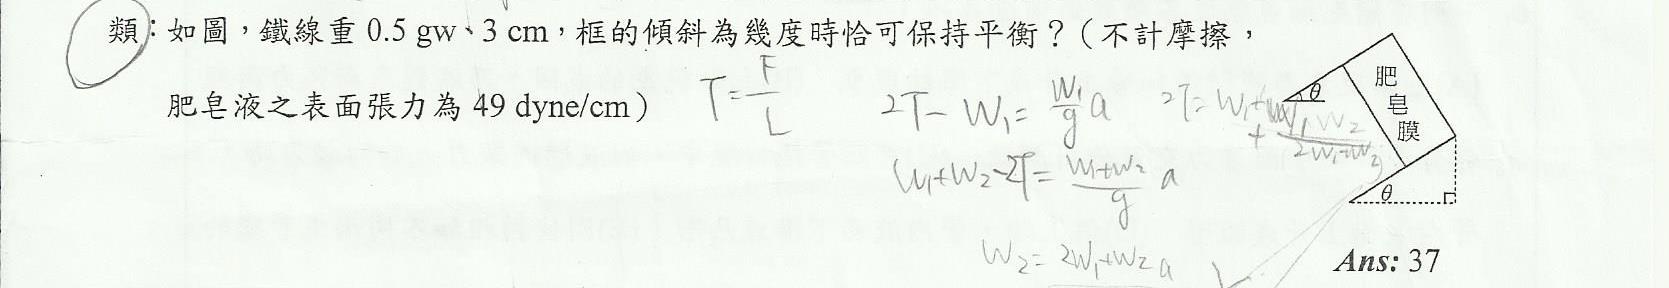 類：如圖，鐵線重 0.5 gw、3 cm，框的傾斜為幾度時恰可保持平衡？（不計摩擦，
肥皂液之表面張力為 49 dyne/cm）
T=F/L
2T-W₁=W₁/g a
2T=W₁+
+ W₁W₂/2W₁+W₂
W₁+W₂-2T=W₁+W₂/g a
W₂=2W₁+W₂ a
θ
肥皂膜
θ
Ans: 37